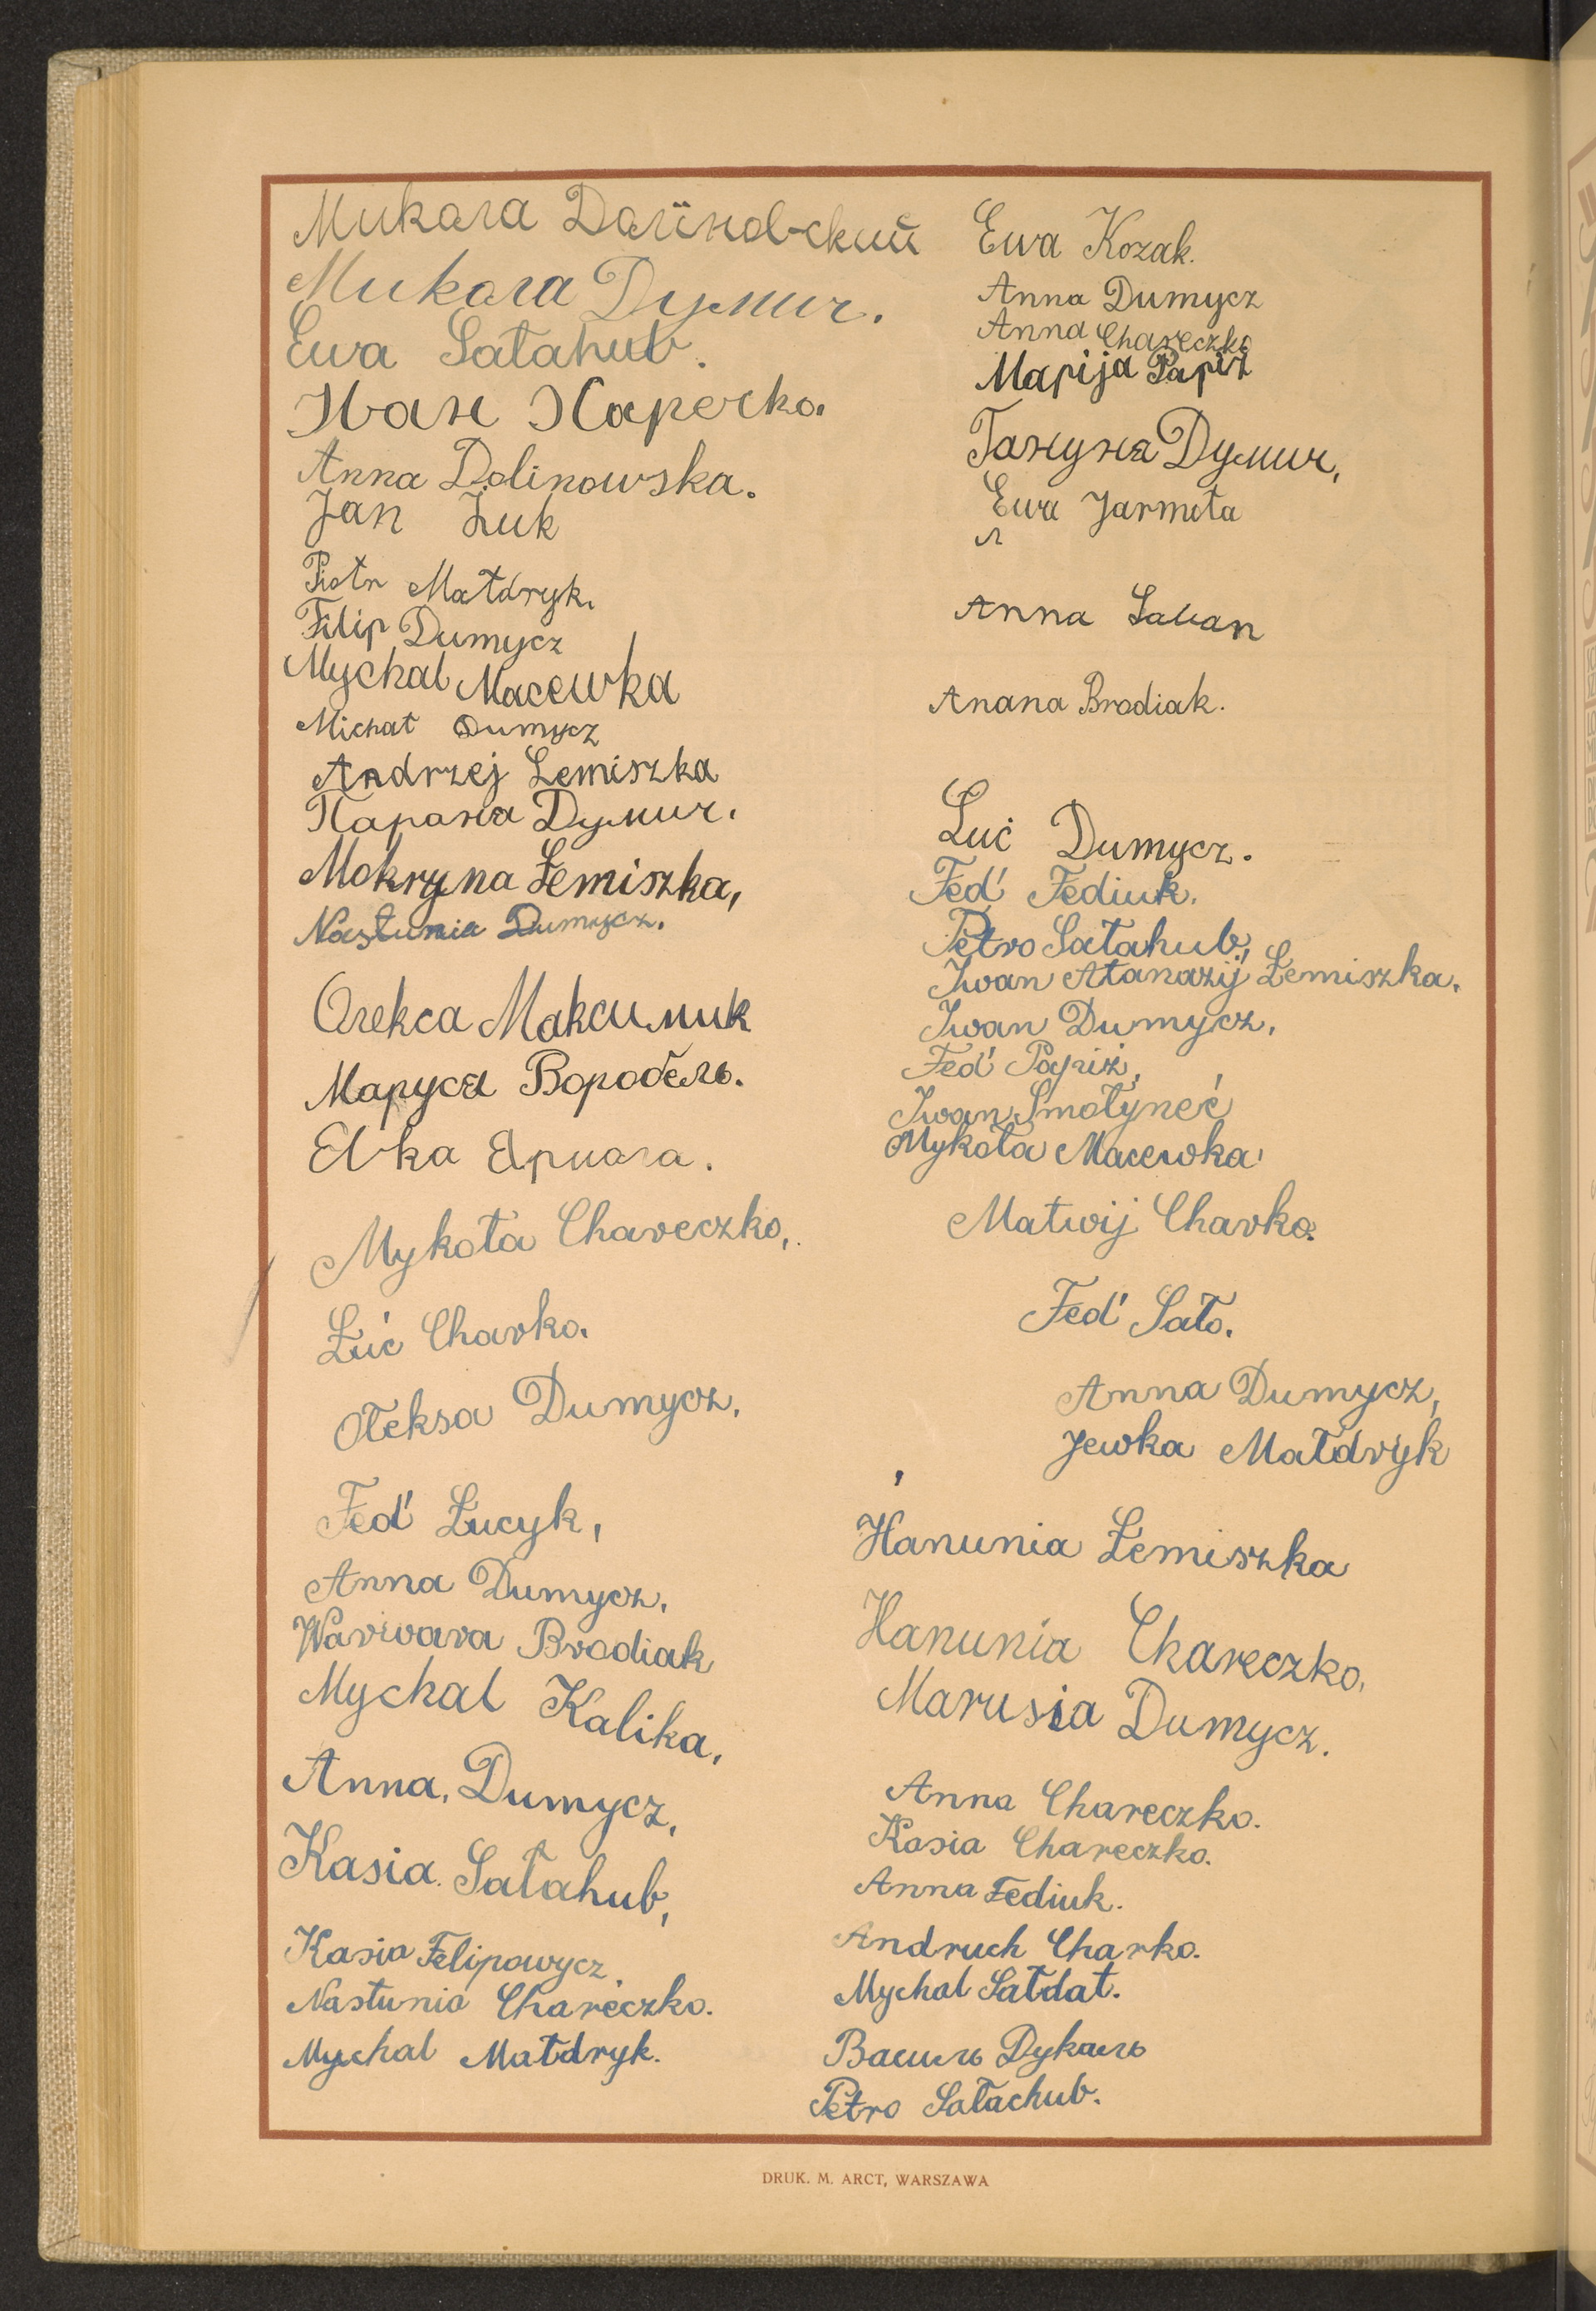 Микола Долїновский
Микола Думич.
Ewa Sałahub.
Иван Харечко.
Anna Dolinowska.
Jan Żuk
Piotr Małdryk.
Filip Dumycz
Mychal Macewka
Michał Dumycz
Andrzej Lemiszka
Параня Думич.
Mokryna Łemiszka,
Nastunia Dumycz.
Олекса Максимик
Маруся Воробель.
Евка Ярмола.
Mykoła Chareczko,
Łuć Charko.
Ołeksa Dumycz,
Fed' Łucyk,
Anna Dumycz,
Warwara Brodiak
Mychal Kalika,
Anna, Dumycz,
Kasia. Sałahub,
Kasia Felipowycz,
Nastunia Chareczko.
Mychal Małdryk.
Ewa Kozak.
Anna Dumycz
Anna Chareczko
Mapija Papiż
Гануня Думич,
Ewa Jarmoła
Anna Saban
Anana Brodiak.
Luć Dumycz.
Fed' Fediuk.
Petro Sałahub,
Iwan Atanazij Łemiszka.
Iwan Dumycz,
Fed' Papiż,
Iwan Smołyneć
Mykoła Macewka
Matwij Charko.
Fed' Sało.
Anna Dumycz,
Jewka Małdryk
Hanunia Łemiszka
Hanunia Chareczko,
Marusia Dumycz.
Anna Chareczko.
Kasia Chareczko.
Anna Fediuk.
Andruch Charko.
Mychal Sałdat.
Василь Дукаль
Petro Sałachub.
DRUK. M. ARCT, WARSZAWA